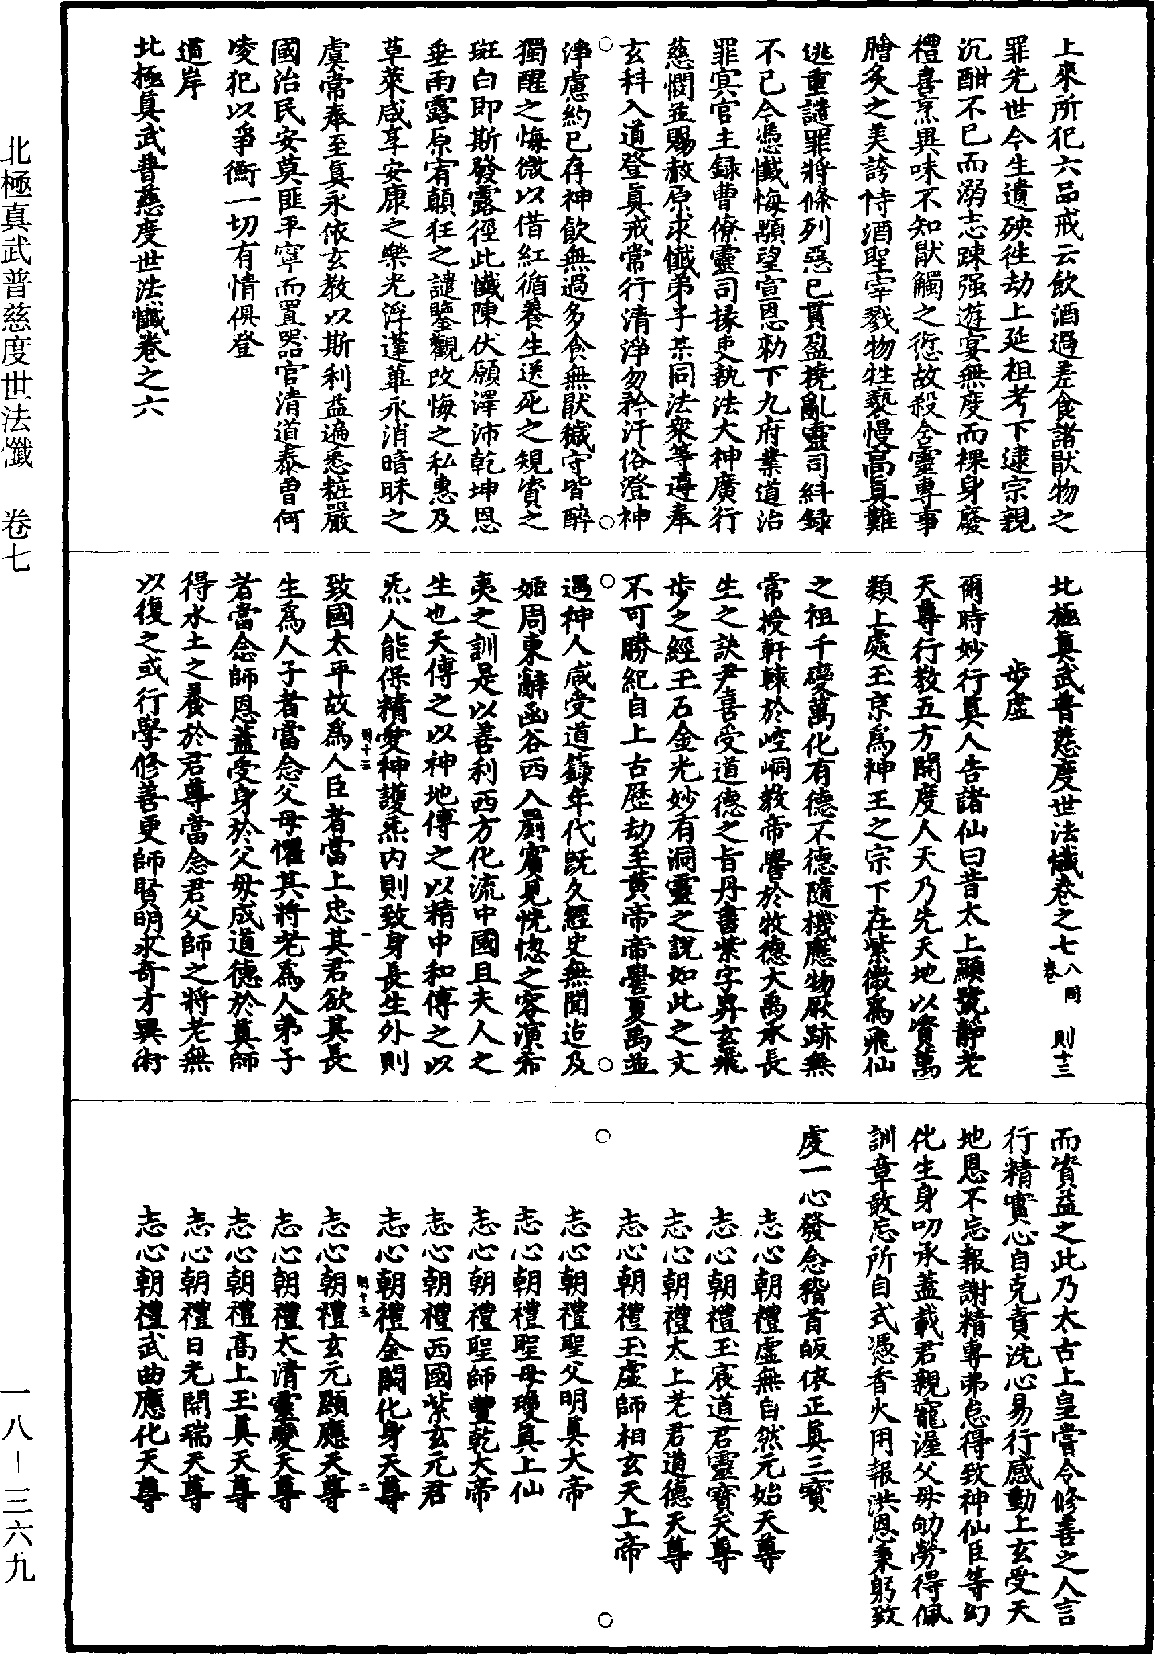 上來所犯六品戒云飲酒過差食諸獸物之
罪先世今生遺殃徃劫上延祖考下逮宗親
沉酣不已而溺志踈强遊宴無度而裸身廢
禮喜烹異味不知猒觸之愆故殺含靈專事
膾炙之美誇恃酒聖宰戮物牲褻慢高真難
逃重譴罪將條列惡已貫盈撓亂靈司糾録
不已今憑懺悔顒望宣恩勑下九府業道治
罪㝠官主録曹僚靈司掾吏執法大神廣行
慈憫並賜赦原求懺弟子某同法衆等遵奉
玄科入道登真戒常行清淨勿矜汙俗澄神
淨慮約已存神飲無過多食無猒穢守皆醉
獨醒之悔微以借紅循養生送死之規資之
斑白即斯發露徑此懺陳伏願澤沛乾坤恩
垂雨露原宥顛狂之譴鑒觀改悔之私惠及
草萊咸享安康之樂光浮蓬蓽永消暗昧之
虞常奉至真永依玄教以斯利益遍悉莊嚴
國治民安莫匪平寧而置器官清道泰曾何
凌犯以爭衡一切有情俱登
道岸
北極真武普慈度世法懺卷之六
北極真武普慈度世法懺卷之七 八同卷 則十三
步虛
爾時妙行真人告諸仙曰昔太上顯號靜老
天尊行教五方開度人天乃先天地以實萬
類上處玉京為神王之宗下在紫微為飛仙
之祖千變萬化有德不德隨機應物厥跡無
常授軒轅於崆峒教帝嚳於牧德大禹承長
生之訣尹喜受道德之旨丹書紫字昇玄飛
步之經玉石金光妙有洞靈之說如此之文
不可勝紀自上古歷劫至黃帝帝嚳夏禹並
遇神人咸受道籙年代既久經史無聞迨及
姬周東辭函谷西入罽賓見恍惚之容演希
夷之訓是以善利西方化流中國且夫人之
生也天傳之以神地傳之以精中和傳之以
炁人能保精愛神護炁内則致身長生外則
致國太平故為人臣者當上忠其君欲其長
生為人子者當念父母懼其將老為人弟子
者當念師恩蓋受身於父母成道德於真師
得水土之養於君尊當念君父師之將老無
以復之或行學修善更師賢明求奇才異術
而資益之此乃太古上皇嘗令修善之人言
行精實心自克責洗心易行感動上玄受天
地恩不忘報謝精專弗怠得致神仙臣等幻
化生身叨承蓋載君親寵渥父母劬勞得佩
訓章敢忘所自式憑香火用報洪恩秉躬致
虔一心發念稽首皈依正真三寶
志心朝禮虛無自然元始天尊
志心朝禮玉宸道君靈寶天尊
志心朝禮太上老君道德天尊
志心朝禮玉虛師相玄天上帝
志心朝禮聖父明真大帝
志心朝禮聖母瓊真上仙
志心朝禮聖師豐乾大帝
志心朝禮西國紫玄元君
志心朝禮金闕化身天尊
志心朝禮玄元顯應天尊
志心朝禮太清靈變天尊
志心朝禮高上玉真天尊
志心朝禮日光開瑞天尊
志心朝禮武曲應化天尊
北極真武普慈度世法懺 卷七
一八—三六九